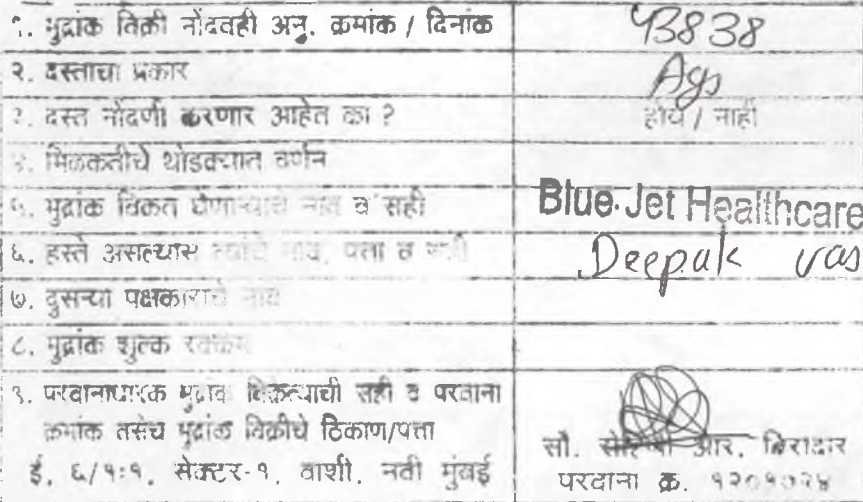 १. मुद्रांक विक्री नोंदवही अनु. क्रमांक / दिनांक 43838
२. दस्ताचा प्रकार Ags
३. दस्त नोंदणी करणार आहेत का ? होय / नाही
४. मिळकतीचे थोडक्यात वर्णन
५. मुद्रांक विकत घेणाऱ्याचे नाव व सही Blue Jet Healthcare
६. हस्ते असल्यास त्यांचे नाव, पत्ता व सही Deepak vas
७. दुसऱ्या पक्षकाराचे नाव
८. मुद्रांक शुल्क रक्कम
९. परवानाधारक मुद्रांक विक्रेत्याची सही व परवाना
क्रमांक तसेच मुद्रांक विक्रीचे ठिकाण/पत्ता
सौ. आर. बिरादार
ई. ६/१:१, सेक्टर-१, वाशी, नवी मुंबई परवाना क्र. १२०१०२४